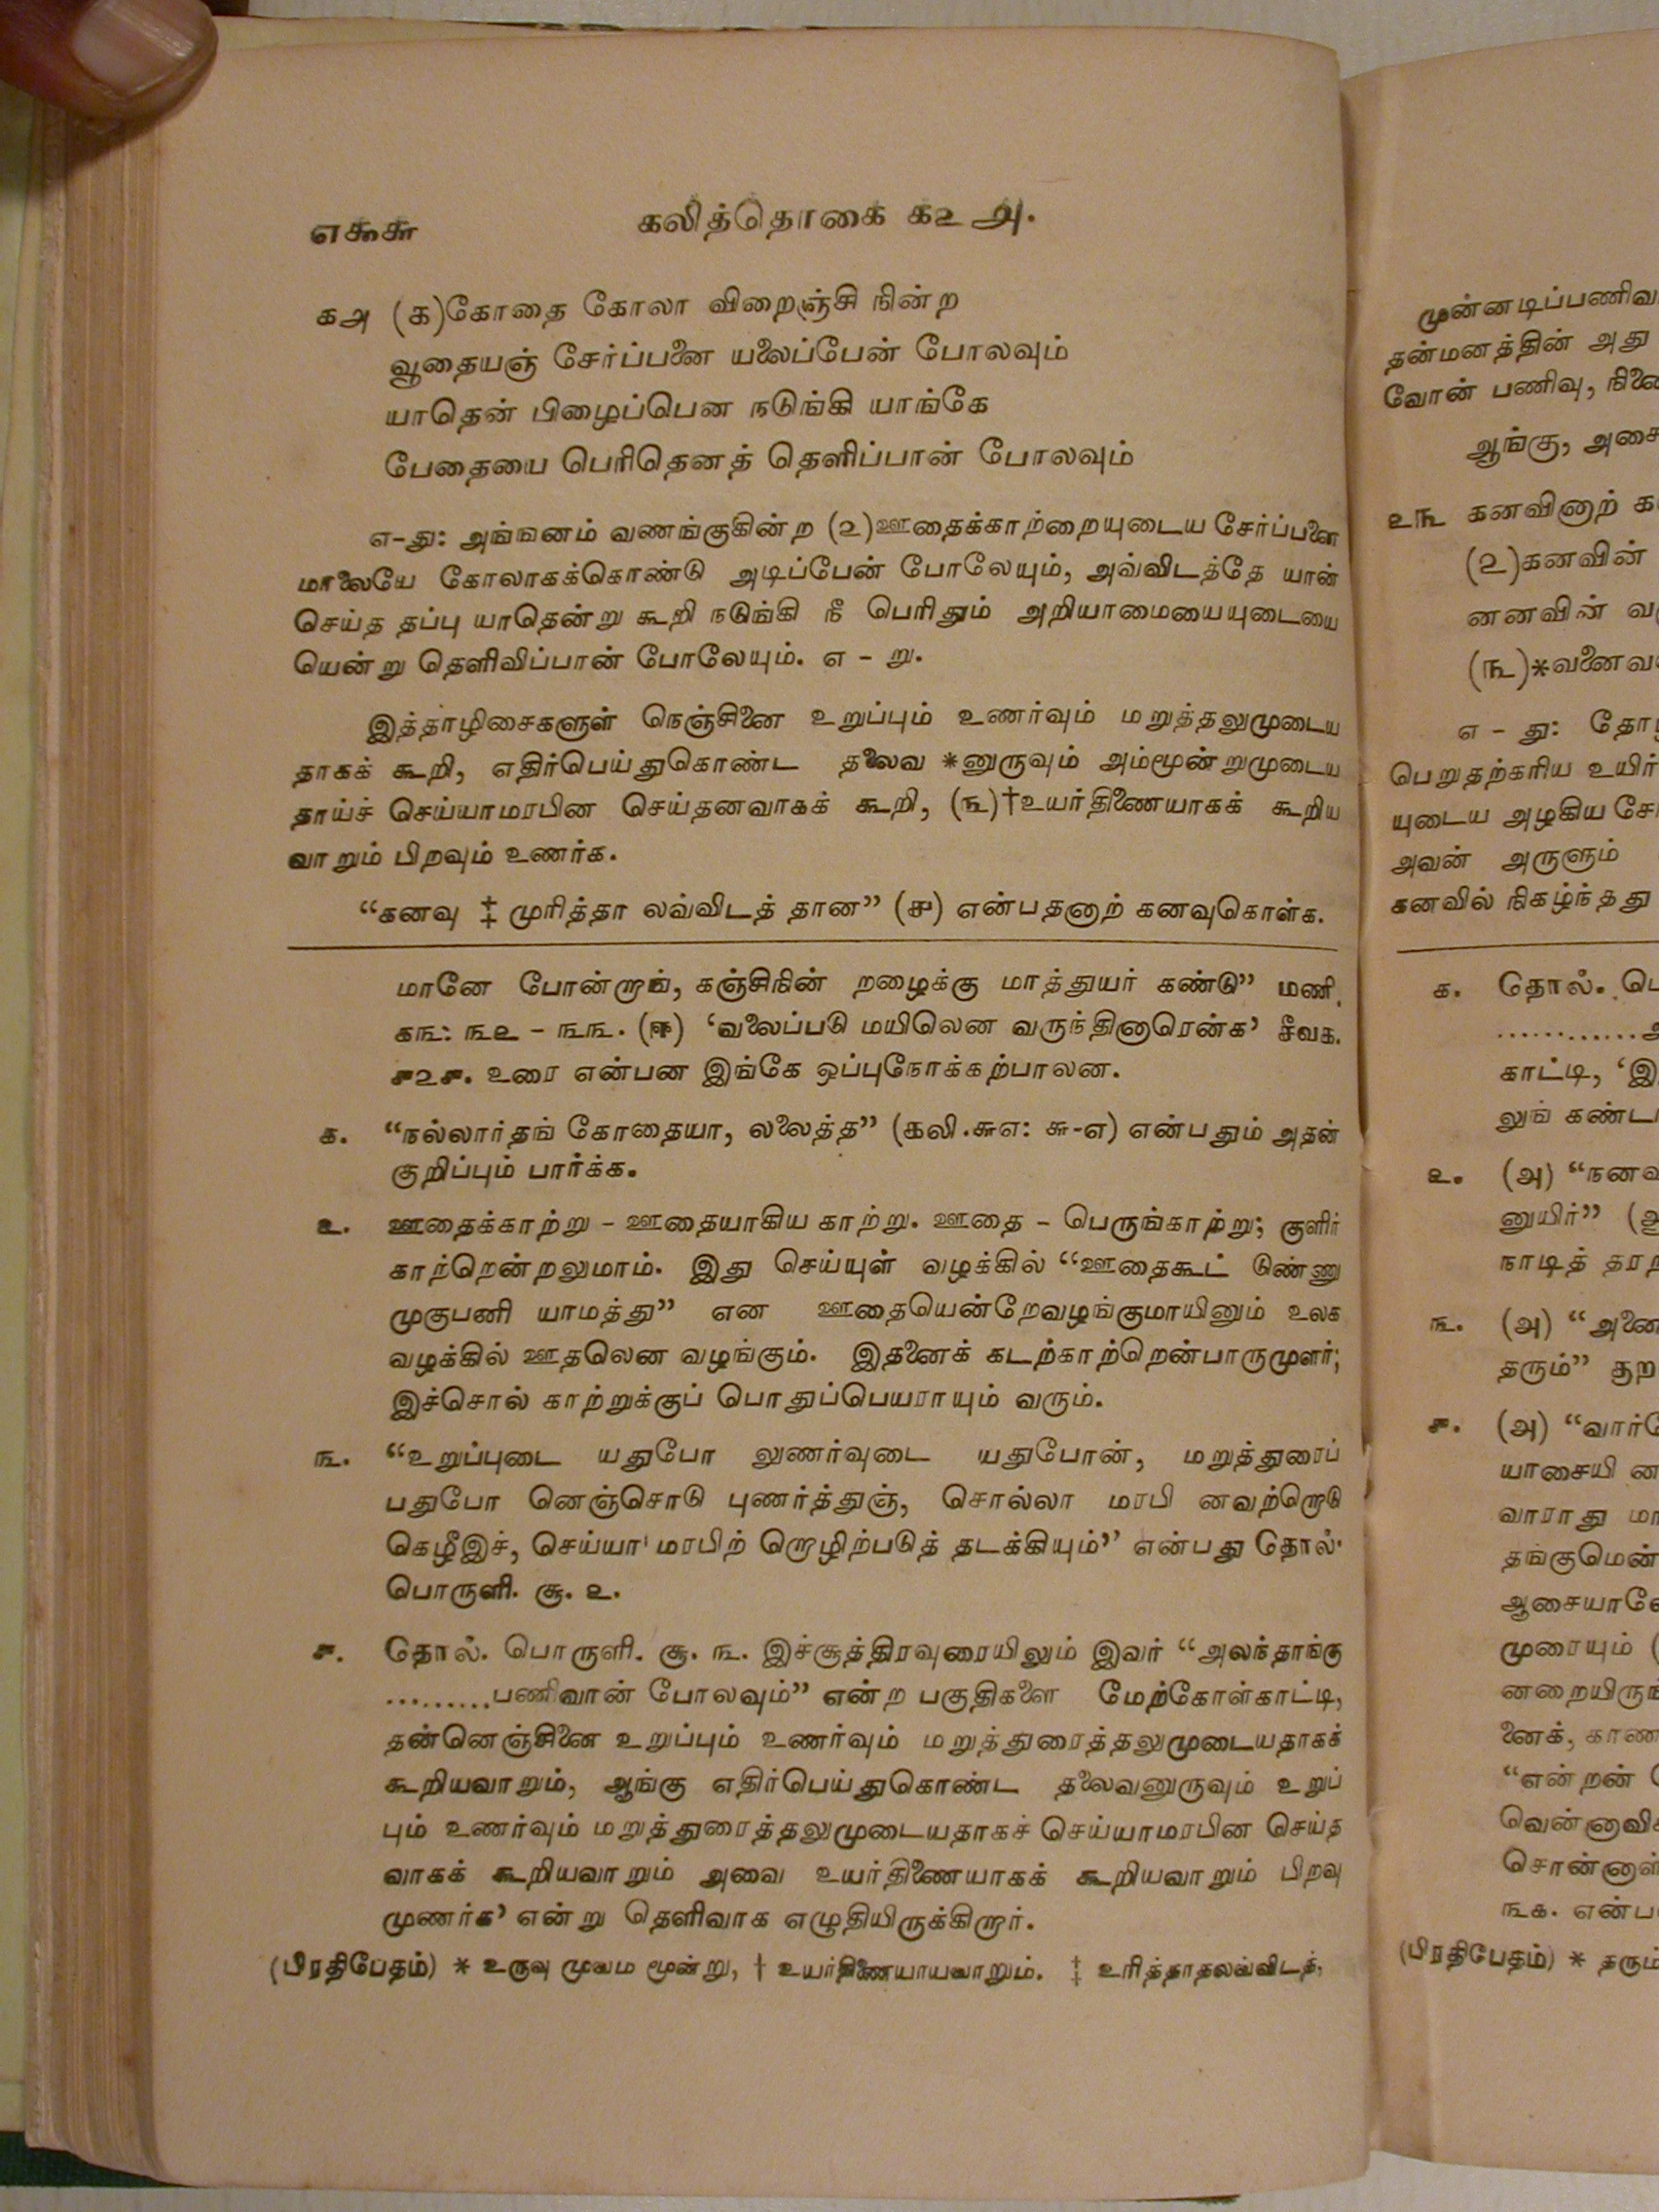 எ௬௯ கலித்தொகை ௧௨௮.
௧௮ (க)கோதை கோலா விறைஞ்சி நின்ற
வூதையஞ் சேர்ப்பனை யலைப்பேன் போலவும்
யாதென் பிழைப்பென நடுங்கி யாங்கே
பேதையை பெரிதெனத் தெளிப்பான் போலவும்
எ-து: அங்ஙனம் வணங்குகின்ற (௨)ஊதைக்காற்றையுடைய சேர்ப்பனை
மாலையே கோலாகக்கொண்டு அடிப்பேன் போலேயும், அவ்விடத்தே யான்
செய்த தப்பு யாதென்று கூறி நடுங்கி நீ பெரிதும் அறியாமையையுடையை
யென்று தெளிவிப்பான் போலேயும். எ - று.
இத்தாழிசைகளுள் நெஞ்சினை உறுப்பும் உணர்வும் மறுத்தலுமுடைய
தாகக் கூறி, எதிர்பெய்துகொண்ட தலைவ *னுருவும் அம்மூன்றுமுடைய
தாய்ச் செய்யாமரபின செய்தனவாகக் கூறி, (௩)†உயர்திணையாகக் கூறிய
வாறும் பிறவும் உணர்க.
“கனவு ‡ முரித்தா லவ்விடத் தான” (௪) என்பதனாற் கனவுகொள்க.
மானே போன்றாங், கஞ்சிநின் றழைக்கு மாத்துயர் கண்டு” மணி.
௧௩: ௩௨ - ௩௩. (ஈ) ‘வலைப்படு மயிலென வருந்தினாரென்க’ சீவக.
௪௨௪. உரை என்பன இங்கே ஒப்புநோக்கற்பாலன.
௧. “நல்லார்தங் கோதையா, லலைத்த” (கலி.௬எ: ௬-எ) என்பதும் அதன்
குறிப்பும் பார்க்க.
௨. ஊதைக்காற்று - ஊதையாகிய காற்று. ஊதை - பெருங்காற்று; குளிர்
காற்றென்றலுமாம். இது செய்யுள் வழக்கில் “ஊதைகூட் டுண்ணு
முகுபனி யாமத்து” என ஊதையென்றேவழங்குமாயினும் உலக
வழக்கில் ஊதலென வழங்கும். இதனைக் கடற்காற்றென்பாருமுளர்;
இச்சொல் காற்றுக்குப் பொதுப்பெயராயும் வரும்.
௩. “உறுப்புடை யதுபோ லுணர்வுடை யதுபோன், மறுத்துரைப்
பதுபோ னெஞ்சொடு புணர்த்துஞ், சொல்லா மரபி னவற்றொடு
கெழீஇச், செய்யா மரபிற் றொழிற்படுத் தடக்கியும்” என்பது தொல்.
பொருளி. சூ. ௨.
௪. தொல். பொருளி. சூ. ௩. இச்சூத்திரவுரையிலும் இவர் “அலந்தாங்கு
.........பணிவான் போலவும்” என்ற பகுதிகளை மேற்கோள்காட்டி,
தன்னெஞ்சினை உறுப்பும் உணர்வும் மறுத்துரைத்தலுமுடையதாகக்
கூறியவாறும், ஆங்கு எதிர்பெய்துகொண்ட தலைவனுருவும் உறுப்
பும் உணர்வும் மறுத்துரைத்தலுமுடையதாகச் செய்யாமரபின செய்த
வாகக் கூறியவாறும் அவை உயர்திணையாகக் கூறியவாறும் பிறவு
முணர்க’ என்று தெளிவாக எழுதியிருக்கிறார்.
(பிரதிபேதம்) * உருவு மூவம மூன்று, † உயர்திணையாயவாறும். ‡ உரித்தாதலவ்விடத்,
முன்னடிப்பணிவ
தன்மனத்தின் அது
வோன் பணிவு,
ஆங்கு,
௨௩ கனவினாற்
(௨)கனவின்
னனவின்
(௩)*வனைவ
எ - து:
பெறுதற்கரிய உயிர்
யுடைய அழகிய
அவன் அருளும்
கனவில் நிகழ்ந்தது
௧. தொல்.
............
காட்டி,
லுங்
௨. (அ)
னுயிர்”
நாடித்
௩. (அ)
தரும்”
௪. (அ)
யாசையி
வாராது
தங்குமென்
முரையும்
னைக்,
“என்றன்
௩௧.
(பிரதிபேதம்) *